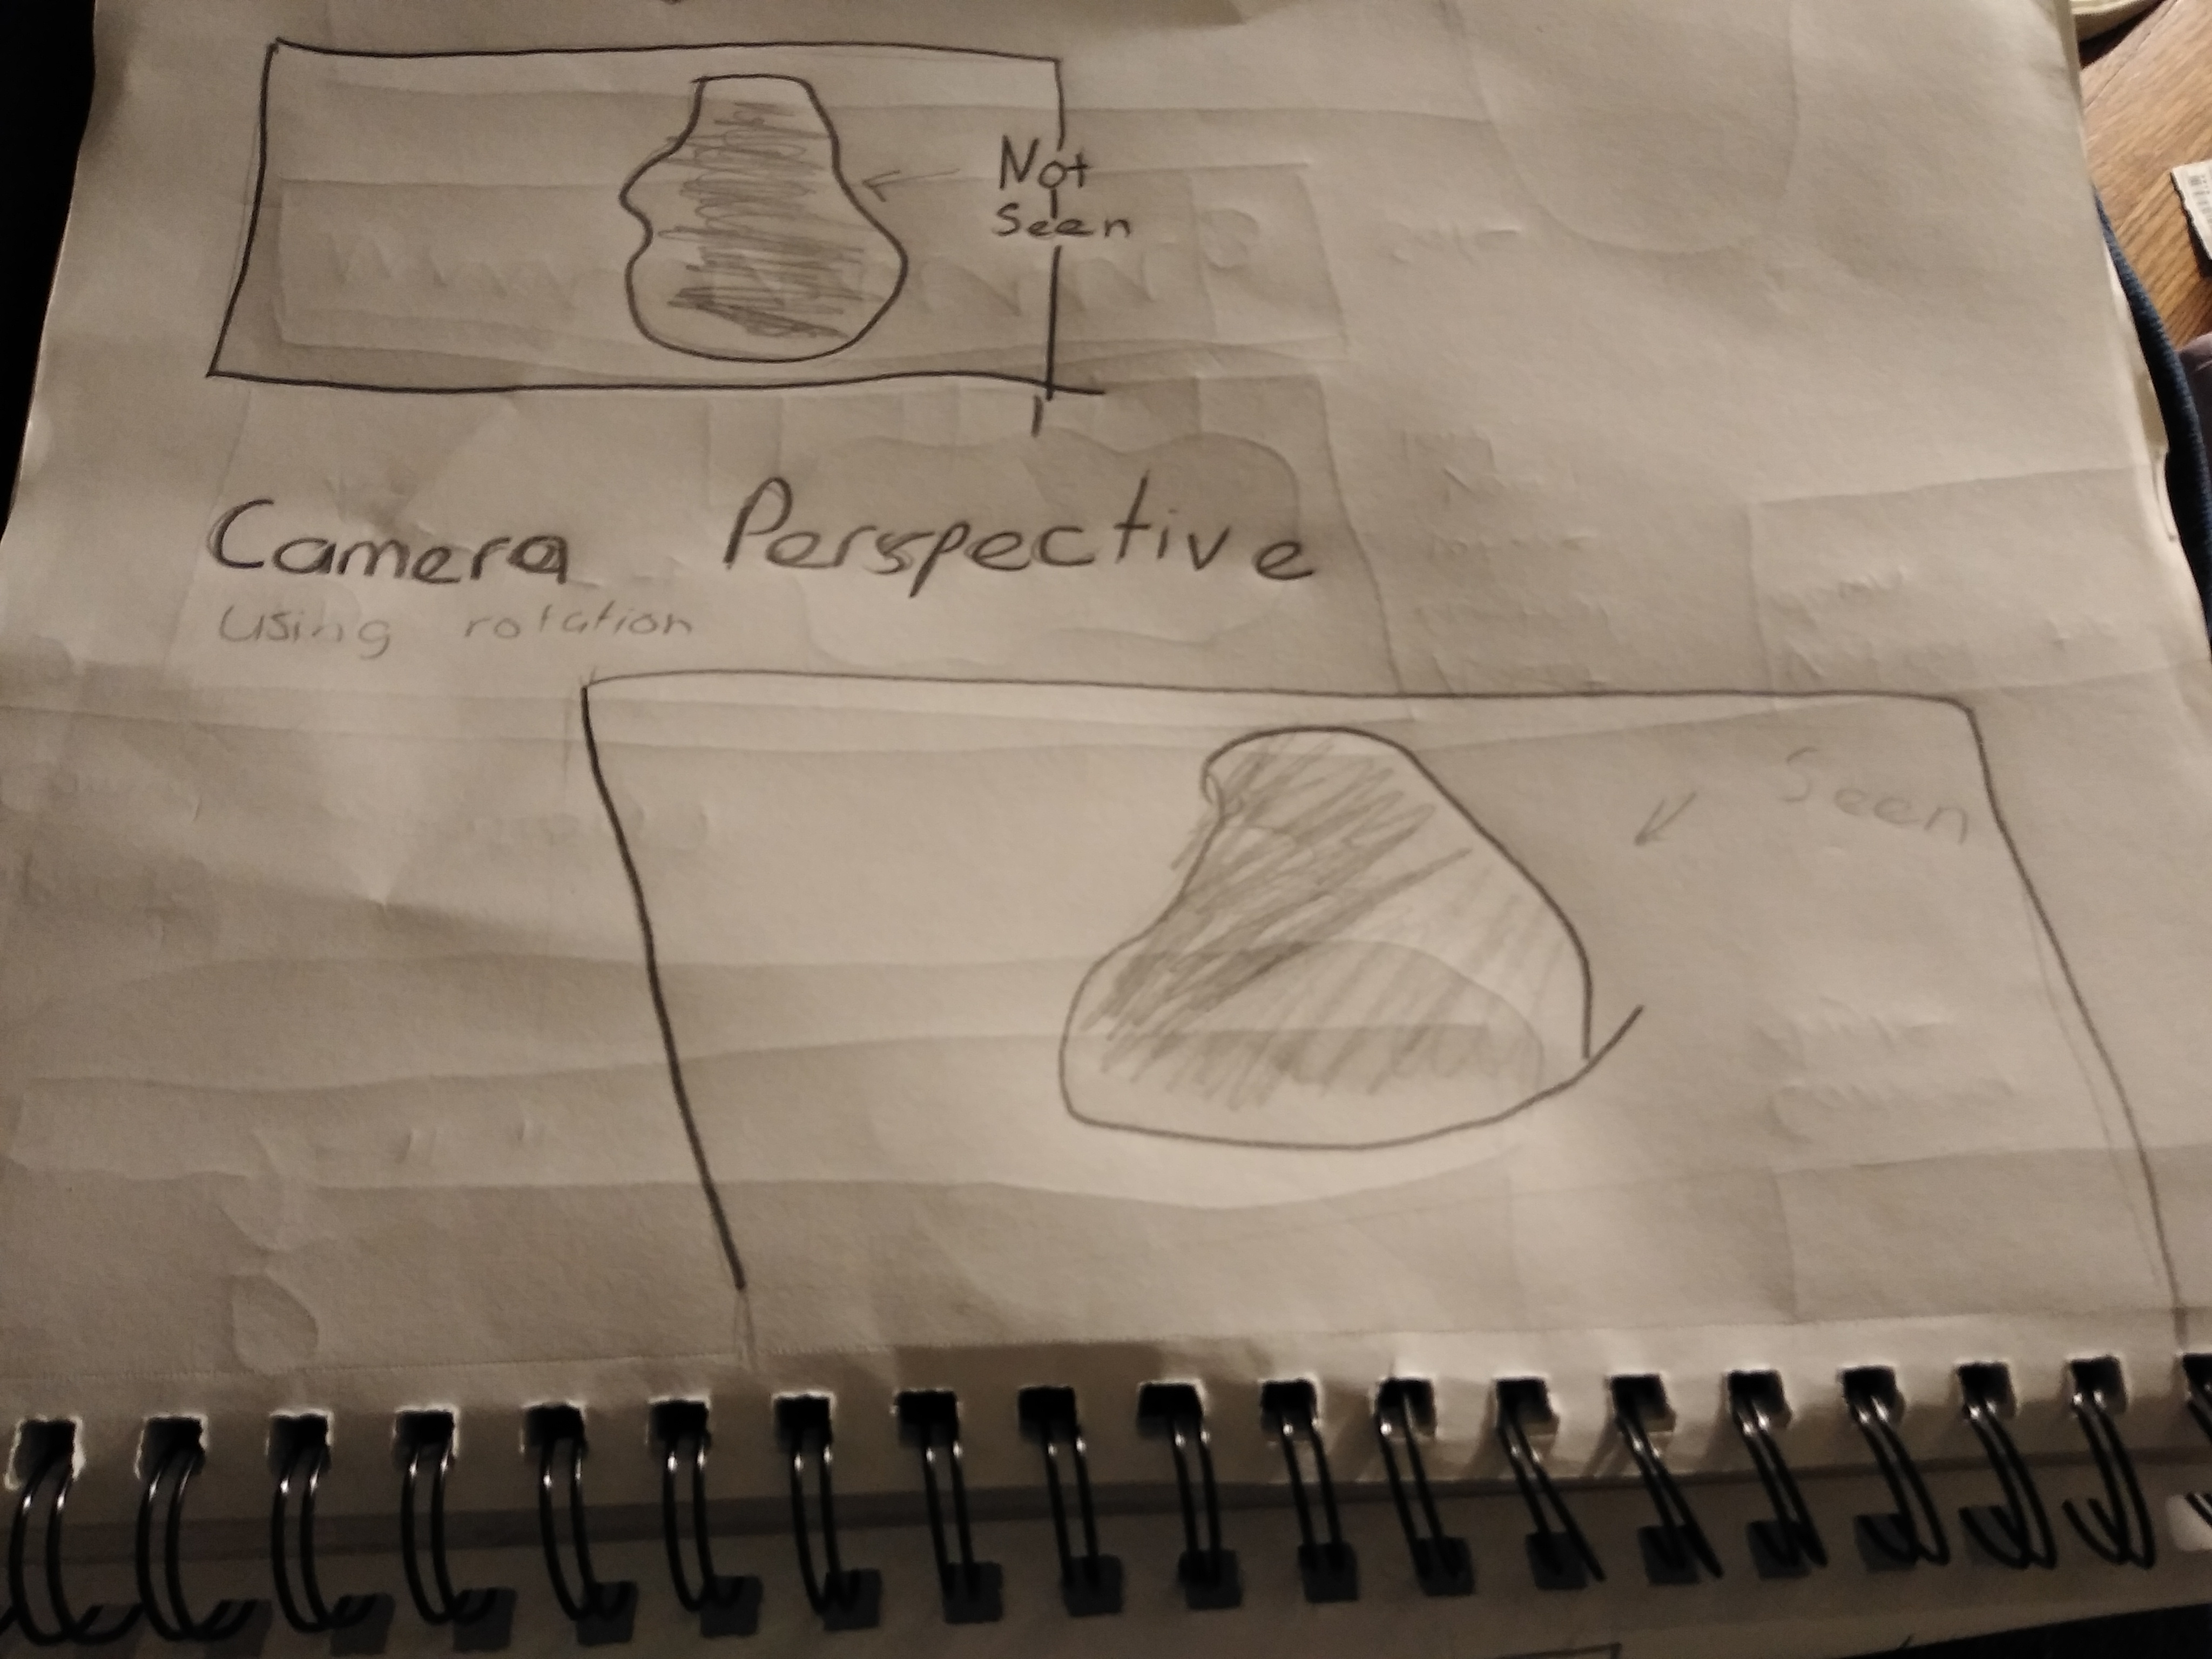 Not
Seen
Camera Perspective
Using rotation
Seen